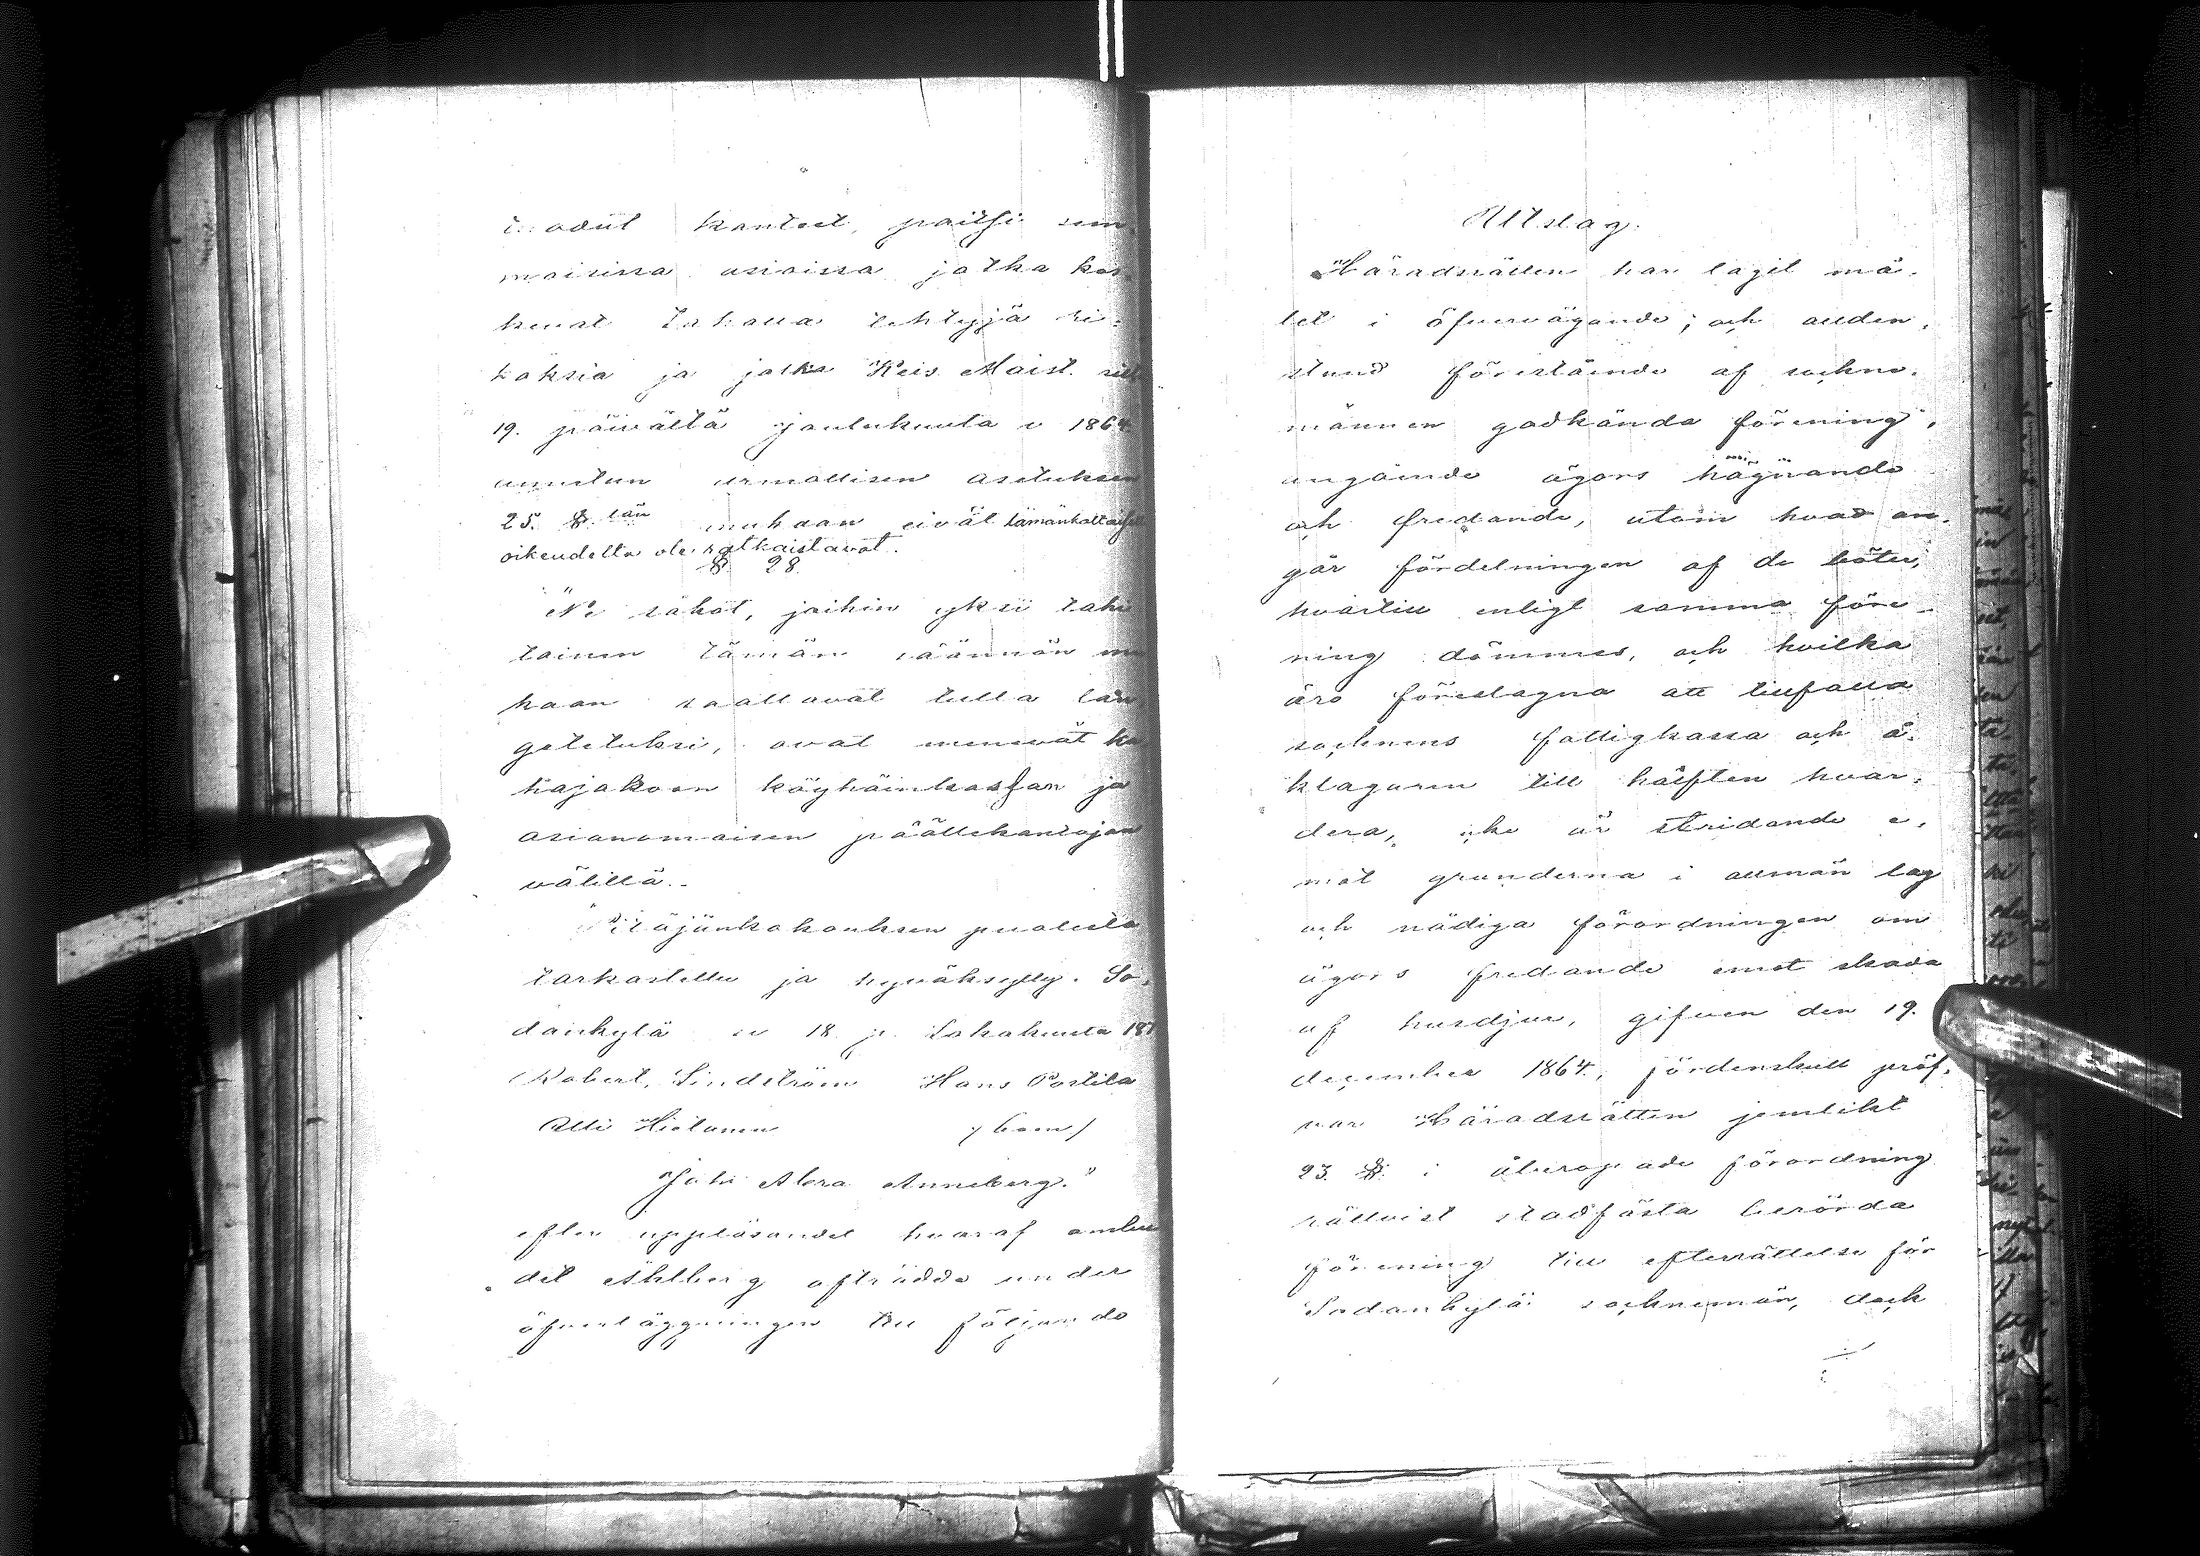 kanteet, paitsi sem-
moisissa asioissa jotka kos-
kevat takaa tehtyjä ri-
koksia ja jotka Keis. Maist.
19. päivältä joulukuuta v 1864
annetun armollisen asetuksen
25. §.län mukaan eivät tämänkaltaisella
oikeudella ole ratkaistavat.
§ 28.
"Ne sakot, joihin yksi taka
lainen tämän säännön mu
kaan saattavat tulla lan
getetuksi, ovat menevät ka
hajakoon köyhäinkassan ja
asianomaisen päällekantajan
välillä.
Pitäjänkokouksen puolesta
tarkastettu ja hyväksytty. So-
dankylä v 18. p. Lokakuuta 187
Robert Lindström Hans Postila
Olli Hietanen / bom /
Juho Abra. Anneberg."
efter uppläsandet hvaraf ombu
det Ahlberg afträdde under
öfverläggningen till följande
Utslag.
Häradsrätten har tagit må-
let i öfvervägande; och alden-
stund förestående af sockne-
männen godkända förening,
angående ägors hägnande
och fredande, utom hvad an-
går fördelningen af de böter,
hvartill enligt samma före-
ning dömmes, och hvilka
äro föreslagna att tillfalla
socknens fattigkassa och å-
klagaren till hälften hvar-
dera, icke är stridande e-
mot grunderna i allmän lag
och nådiga förordningen om
ägors fredande emot skada
af husdjur, gifven den 19.
december 1864, fördenskull pröf-
var Häradsrätten jemlikt
23. §. i åberopade förordning
rättvist stadfästa berörda
förening till efterrättelse för
Sodankylä sockenemän, dock